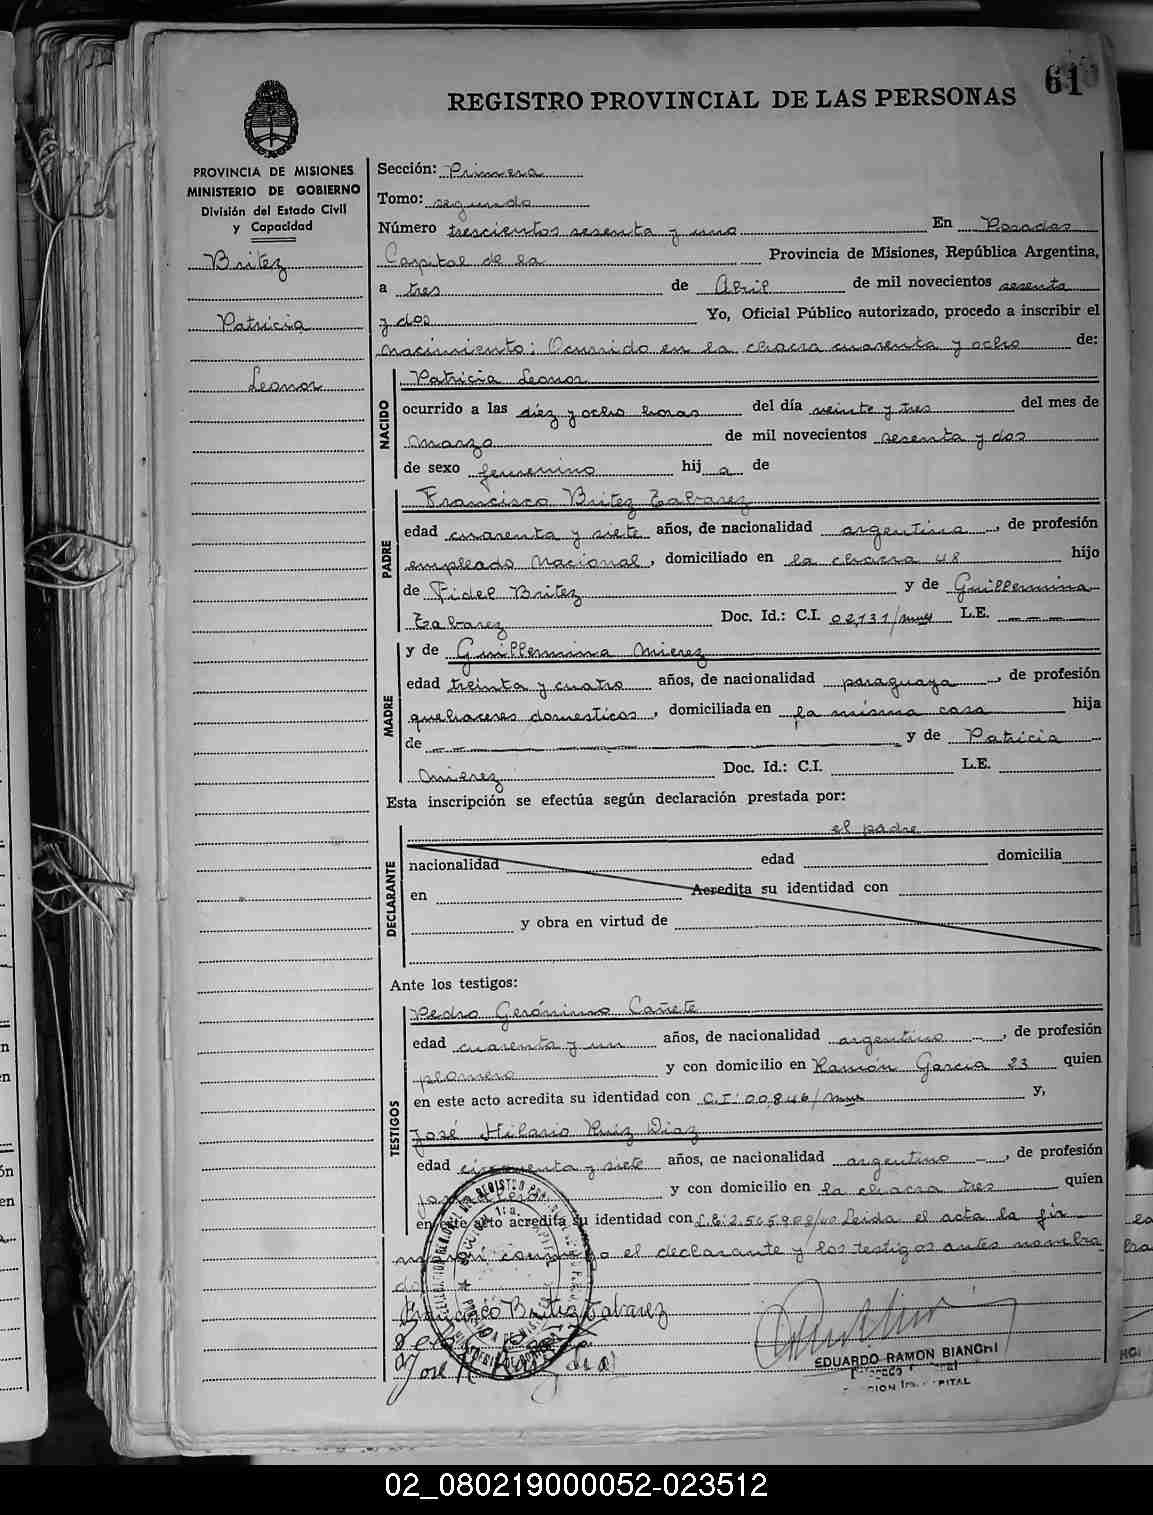 REGISTRO PROVINCIAL DE LAS PERSONAS
61
PROVINCIA DE MISIONES
MINISTERIO DE GOBIERNO
División del Estado Civil
y Capacidad
Britez
Patricia
Leonor
Sección: Primera
Tomo: segundo
Número trescientos sesenta y uno En Posadas
Capital de la Provincia de Misiones, República Argentina,
a tres de Abril de mil novecientos sesenta
y dos Yo, Oficial Público autorizado, procedo a inscribir el
nacimiento: Ocurrido en la chacra cuarenta y ocho de:
NACIDO
Patricia Leonor
ocurrido a las diez y ocho horas del día veinte y tres del mes de
Marzo de mil novecientos sesenta y dos
de sexo femenino hij a de
PADRE
Francisco Britez Tabarez
edad cuarenta y siete años, de nacionalidad argentina, de profesión
empleado Nacional, domiciliado en la chacra 48 hijo
de Fidel Britez y de Guillermina
Tabarez Doc. Id.: C.I. 02,131/ L.E. ----
MADRE
y de Guillermina Mierez
edad treinta y cuatro años, de nacionalidad paraguaya, de profesión
quehaceres domesticos, domiciliada en la misma casa hija
de y de Patricia
Mierez Doc. Id.: C.I. L.E.
Esta inscripción se efectúa según declaración prestada por:
DECLARANTE
el padre
nacionalidad edad domicilia
en Acredita su identidad con
y obra en virtud de
Ante los testigos:
TESTIGOS
Pedro Gerónimo Cañete
edad cuarenta y un años, de nacionalidad argentino, de profesión
plomero y con domicilio en Ramón Garcia 23 quien
en este acto acredita su identidad con C.I: 00,846/ y,
José Hilario Ruiz Diaz
edad cincuenta y siete años, de nacionalidad argentino -, de profesión
y con domicilio en la chacra tres quien
en este acto acredita su identidad con L.E: 2.505.908/ Leida el acta la fir
man conmigo el declarante y los testigos antes nombra
dos
Francisco Britez Tabarez
José R. Ruiz Diaz
EDUARDO RAMON BIANCHI
02_080219000052-023512